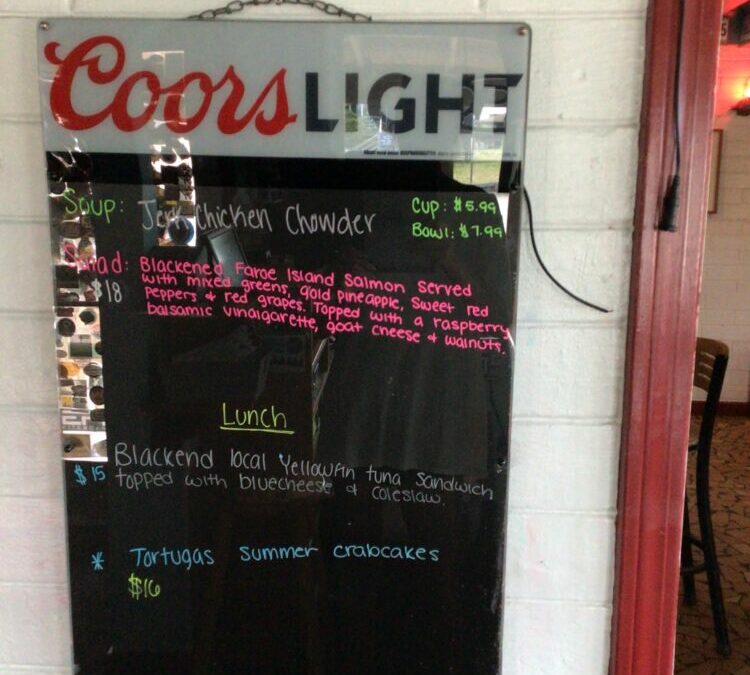 Coors LIGHT
Soup: Jerk Chicken Chowder Cup: $5.99
Bowl: $7.99
Salad: Blackened Faroe Island Salmon served
$18 with mixed greens, gold pineapple, sweet red
peppers & red grapes. Topped with a raspberry
balsamic vinaigarette, goat cheese & walnuts.
Lunch
$15 Blackend local Yellowfin tuna sandwich
topped with bluecheese & coleslaw.
* Tortugas summer crabcakes
$16